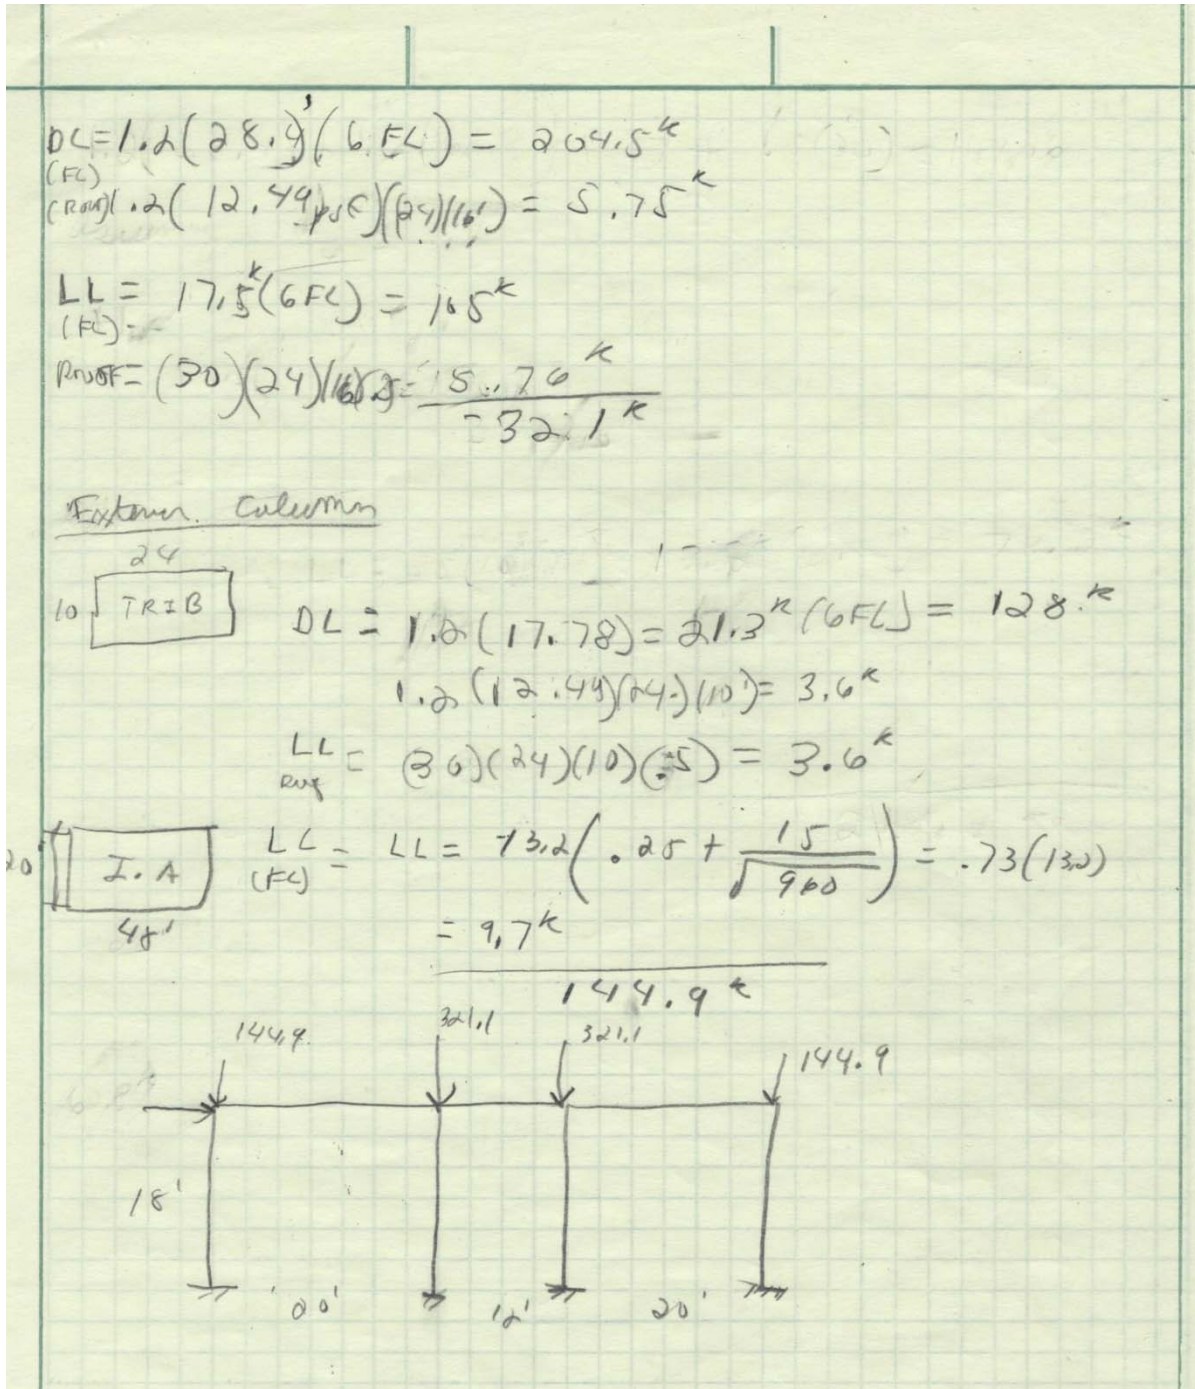 DL = 1.2(28.4)(6 FL) = 204.5^k
(FL)
(ROOF) 1.2(12.49 psf)(24)(16') = 5.75^k
LL = 17.5^k(6 FL) = 105^k
(FL)
ROOF = (30)(24)(16)(.5) = 5.76^k
321.1^k
Exterior Column
24
10 TRIB
DL = 1.2(17.78) = 21.3^k (6 FL) = 128.^k
1.2(12.49)(24)(10') = 3.6^k
LL = (30)(24)(10)(.5) = 3.6^k
Roof
20' I.A
48'
LL = LL = 13.2(.25 + 15/√960) = .73(13.2)
(FL)
= 9.7^k
144.9^k
144.9 321.1 321.1 144.9
18'
20' 12' 20'